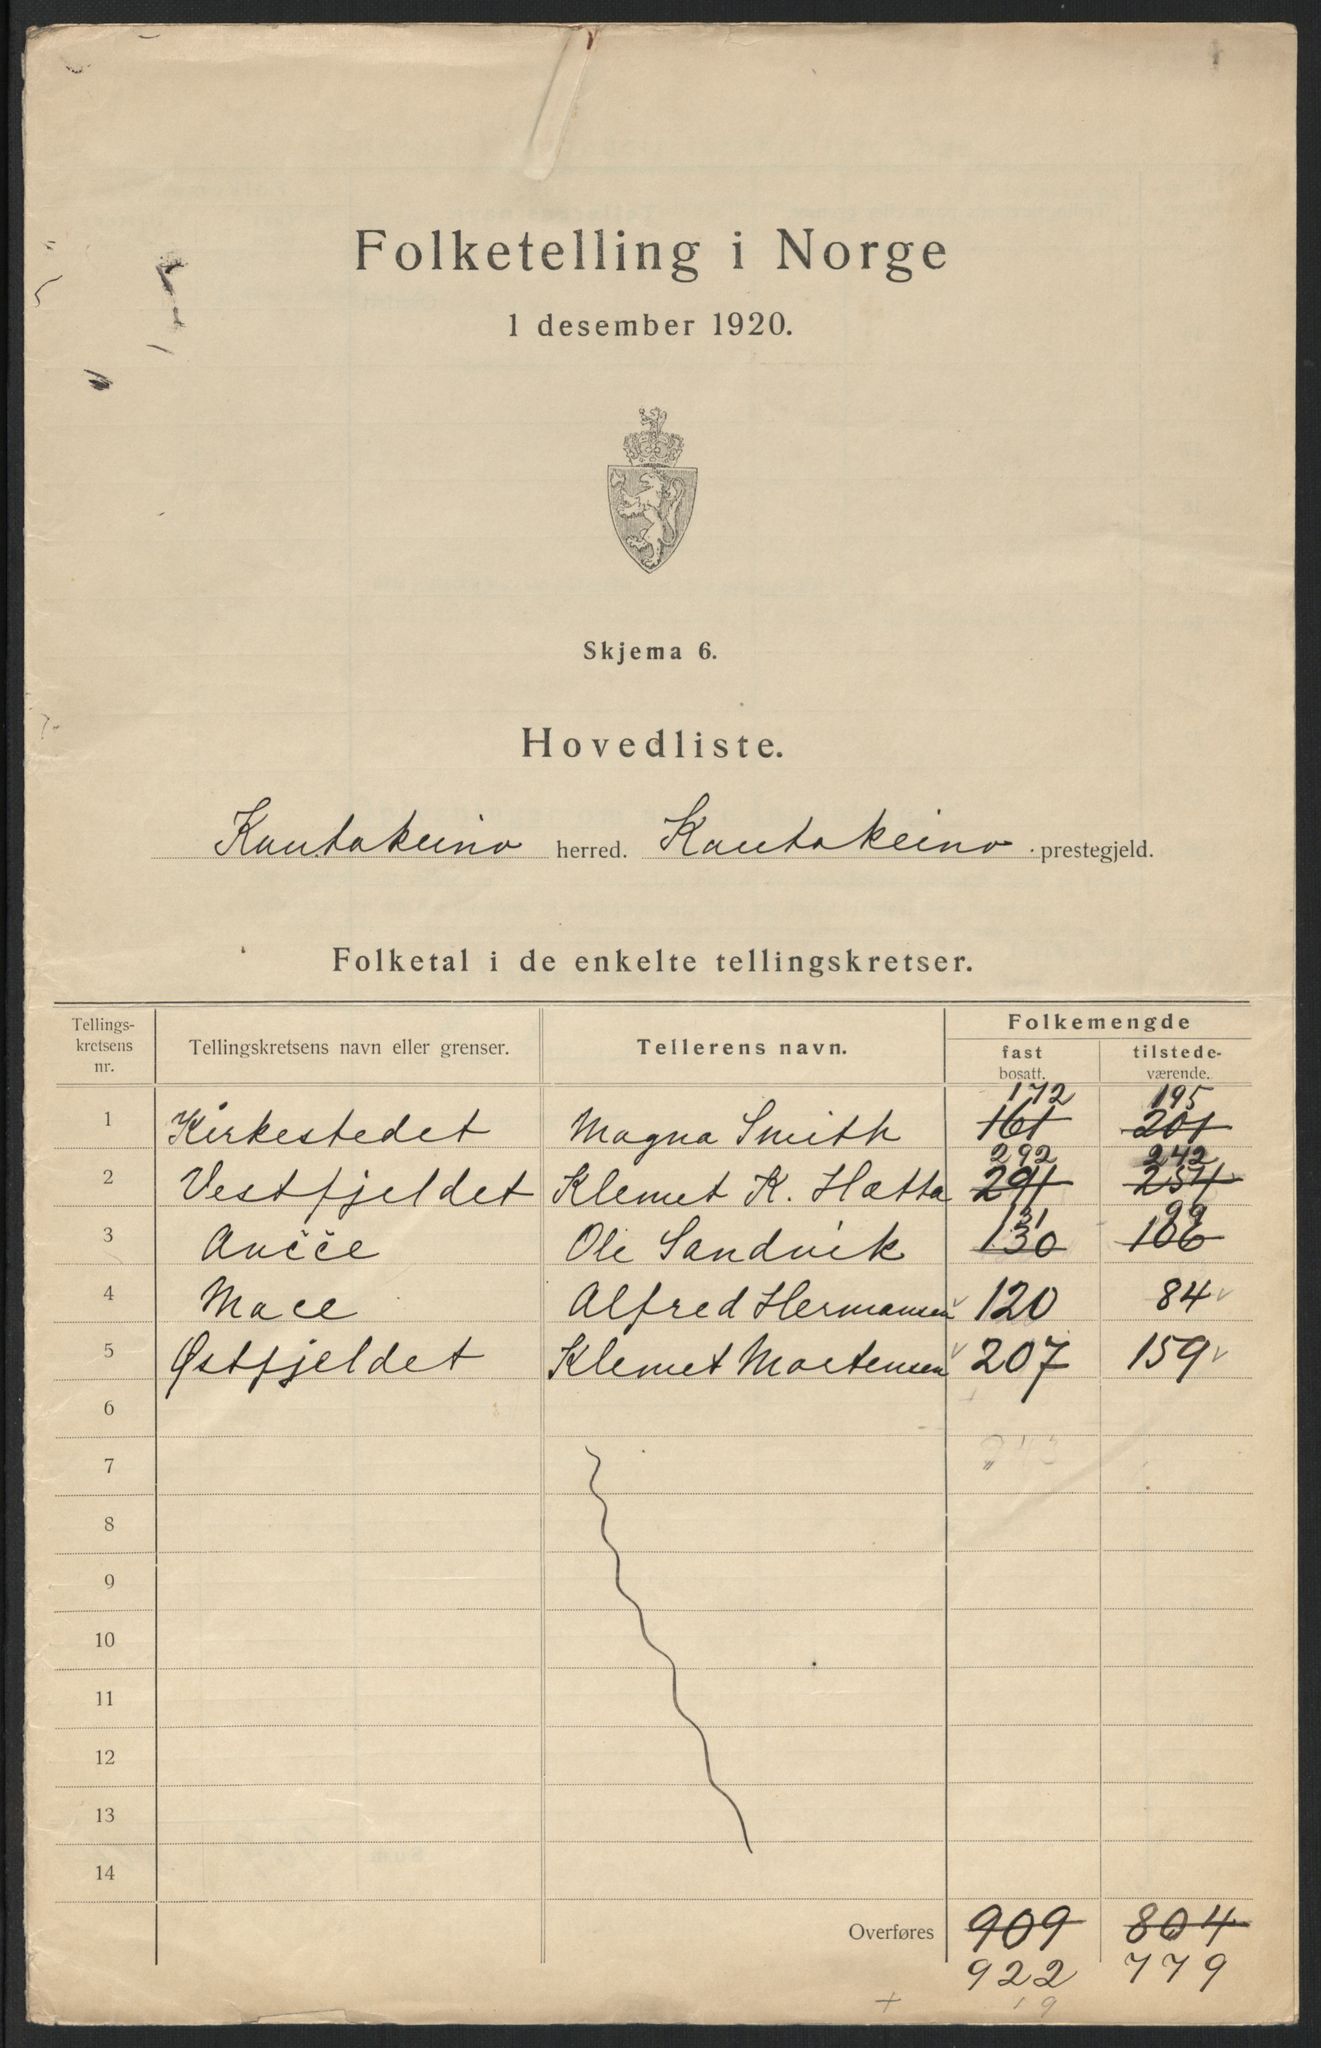 Folketelling i Norge
1 desember 1920.
Skjema 6.
Hovedliste.
Kautokeino herred. Kautokeino prestegjeld.
Folketal i de enkelte tellingskretser.
Tellings-
kretsens
nr.
Tellingskretsens navn eller grenser.
Tellerens navn.
Folkemengde
fast
bosatt.
tilstede-
værende.
172 195
1 Kirkestedet Magna Smith 161 201
292 242
2 Vestfjeldet Klemet K. Hætta 291 254
131 99
3 Avčče Ole Sandvik 130 106
4 Mace Alfred Hermansen 120 84
5 Østfjeldet Klemet Mortensen 207 159
6
7
8
9
10
11
12
13
14
Overføres 909 804
922 779